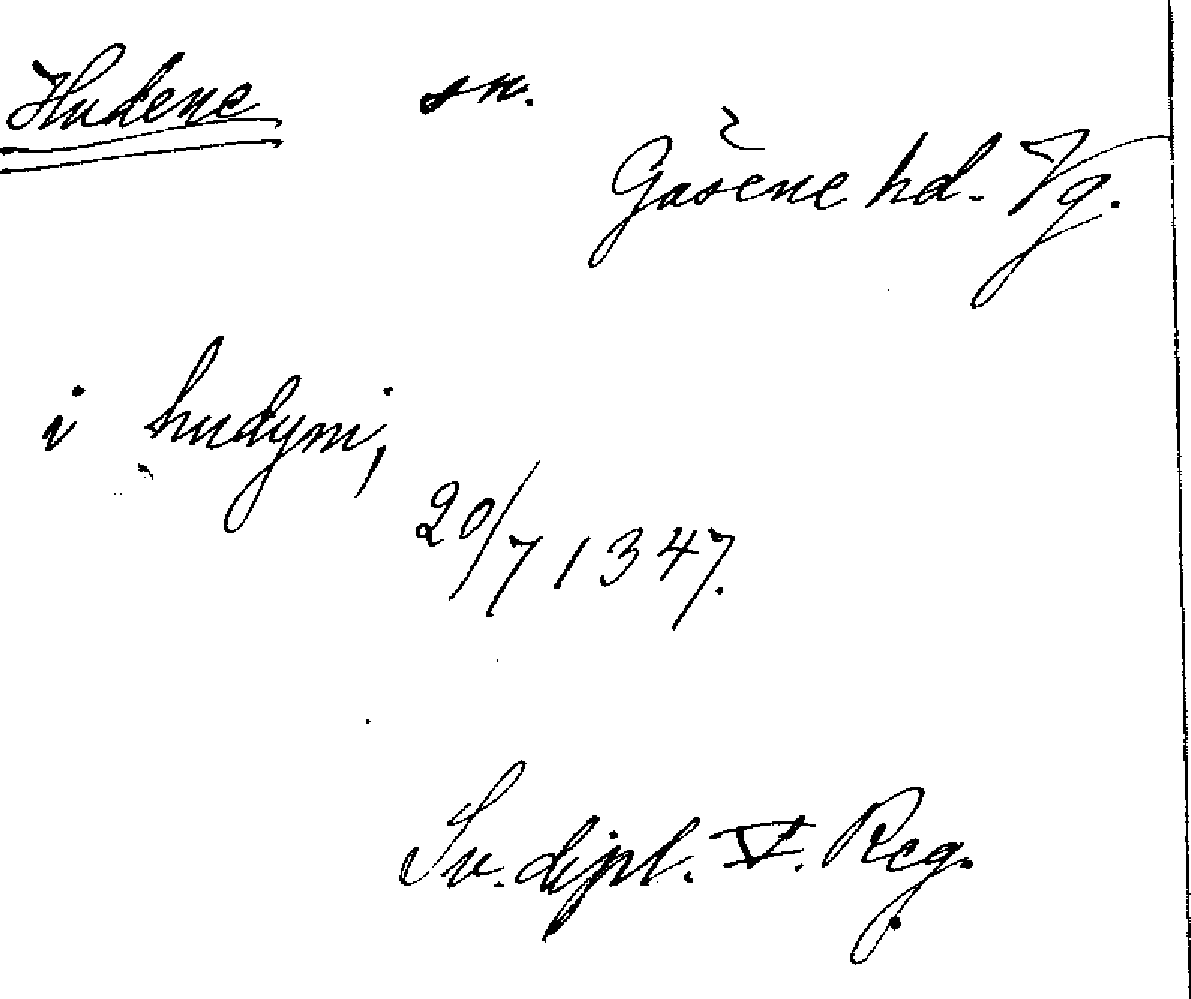 Hudene sn.
Gäsene hd. Vg.
i hudymi,
20/7 1347.
Sv. dipl. V. Reg.